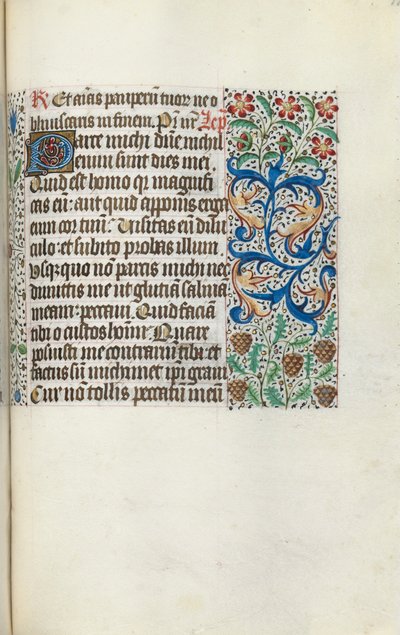 R Et aīas pauperū tuor ne o
bliuiscaris in finem. Pr̄ nr̄ Lep̄
Parce michi dn̄e nichil
enim sunt dies mei
Quid est homo qr magnifi
cas eū: aut quid apponis erga
eum cor tuū: Uisitas eū dilu
culo: et subito probas illum.
Usq̄quo nō parcis michi nec
dimittis me ut glutiā saliuā
meam: peccaui. Quid faciā
tibi o custos hoīm: Quare
posuisti me contrariū tibi: et
factus sū michimet ipi grauis
Cur nō tollis peccatū meū